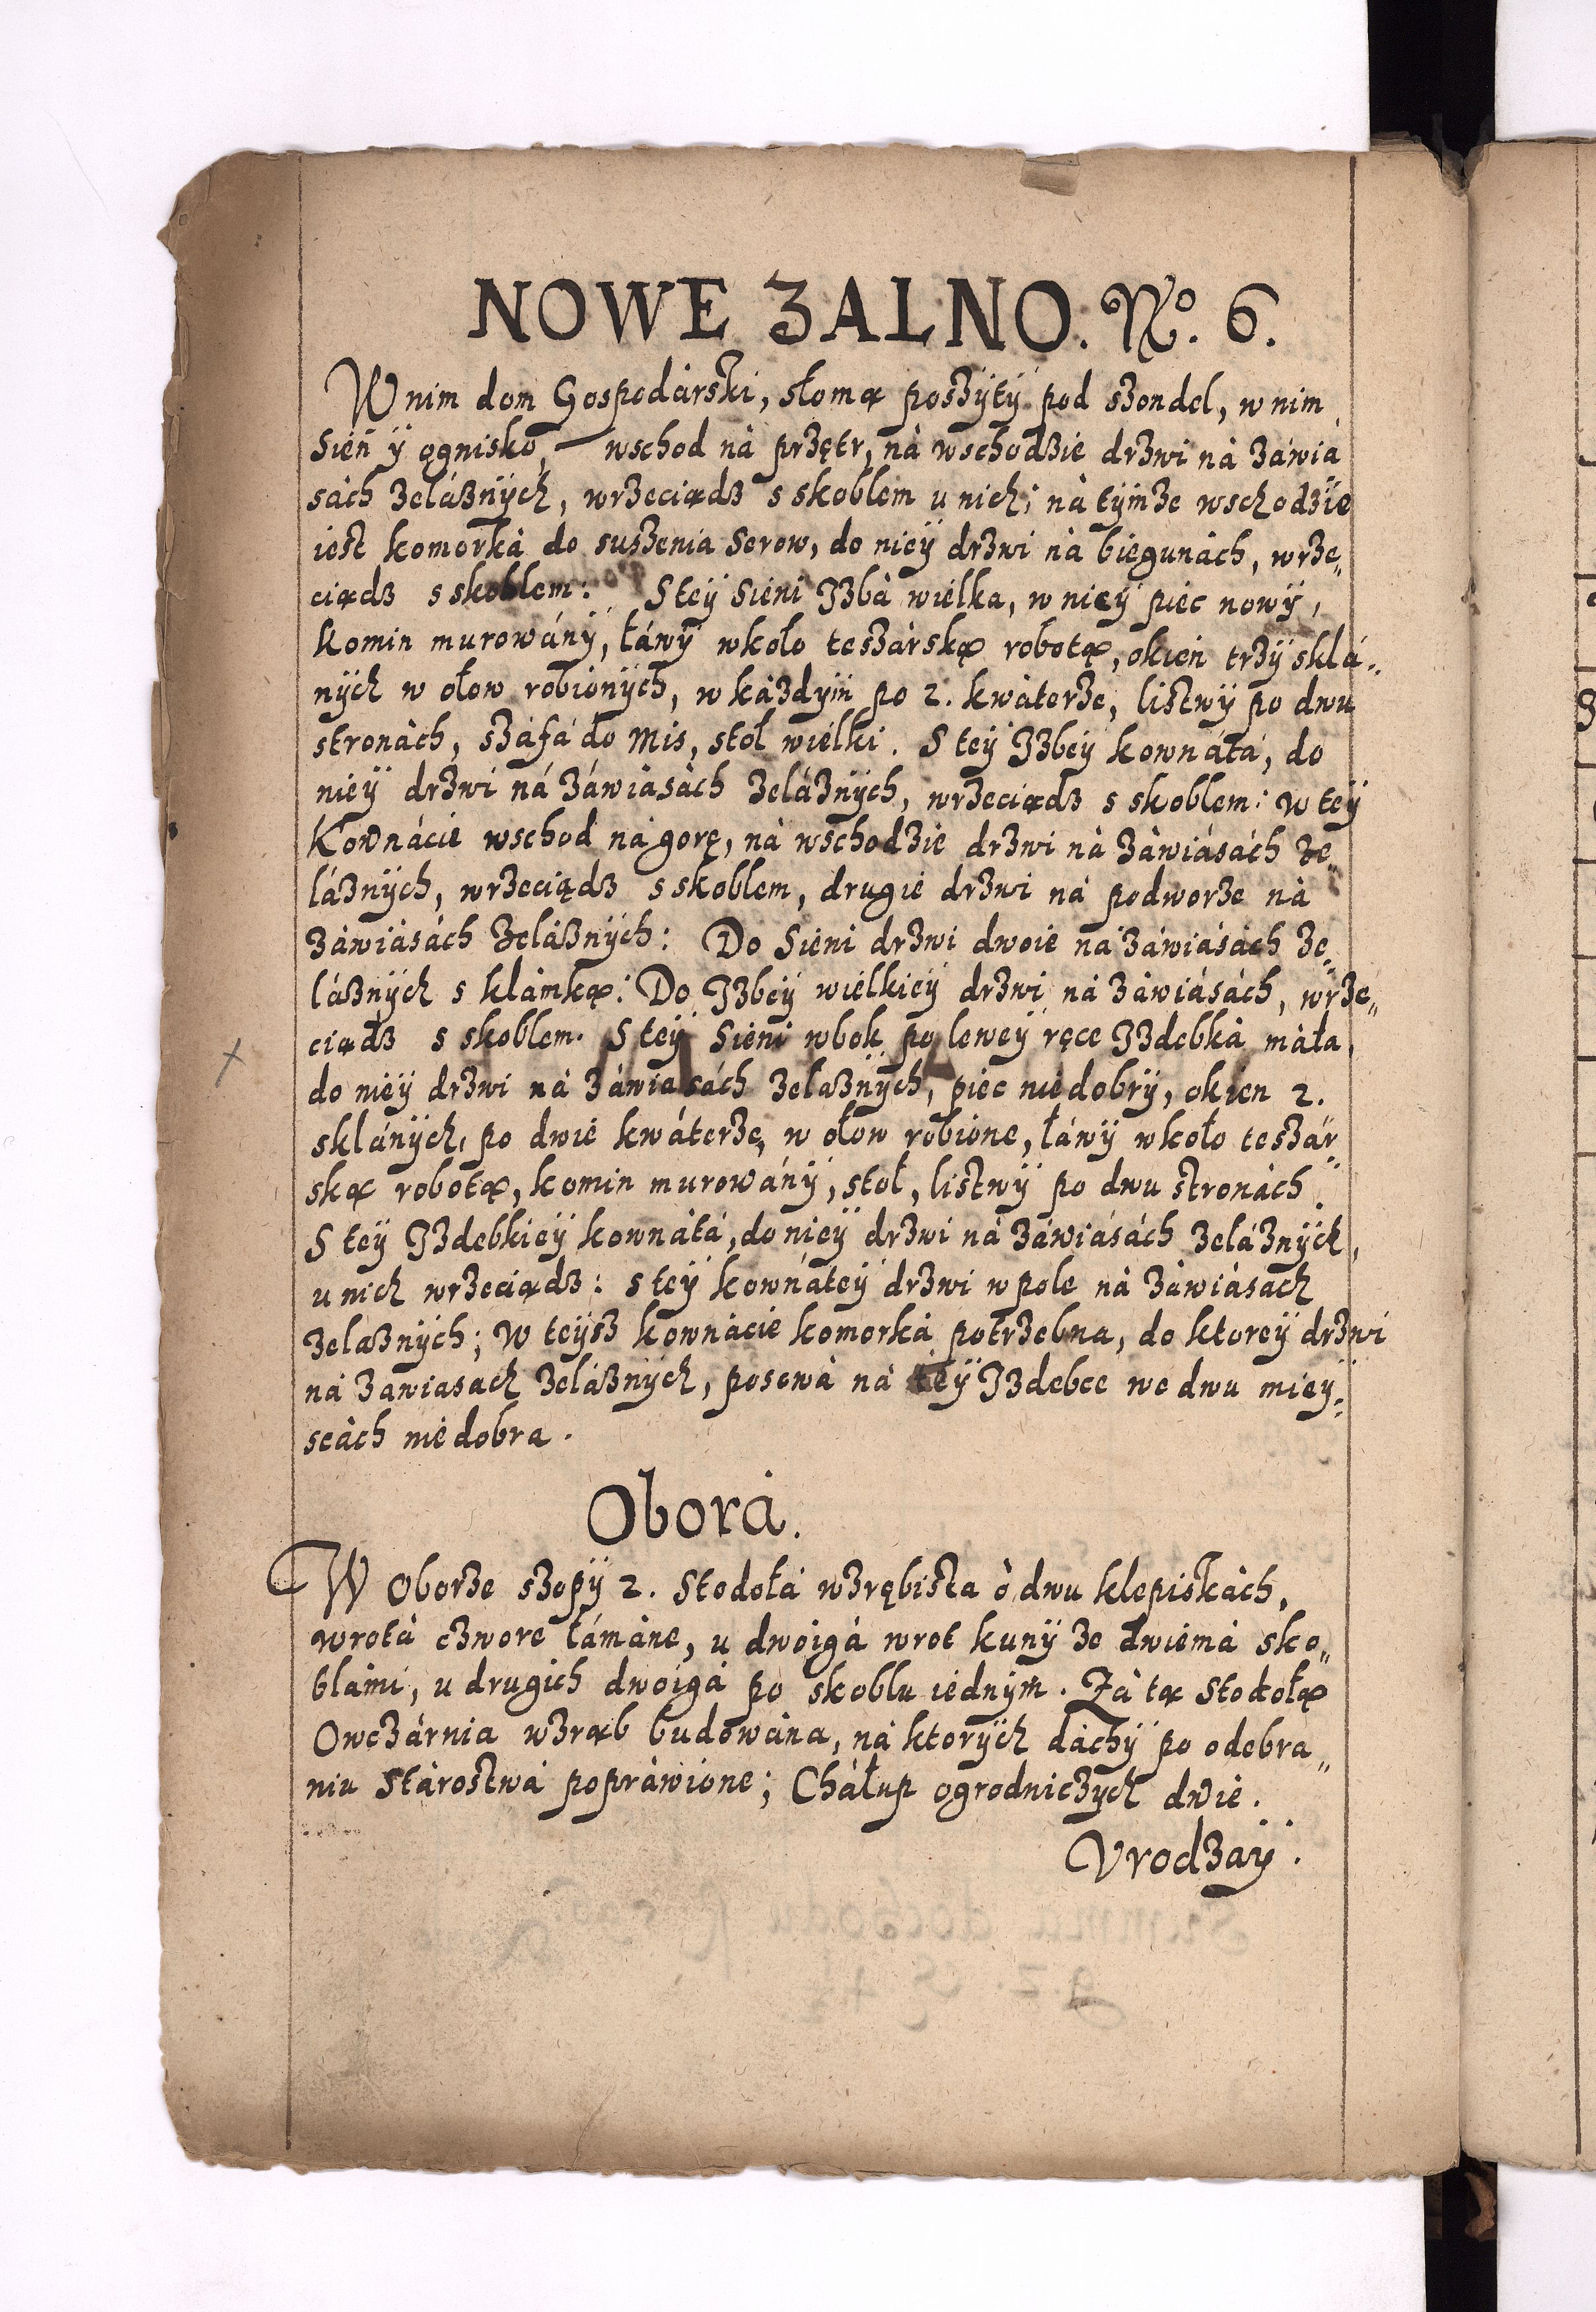 NOWE ZALNO. No. 6.
W nim dom Gospodárski, słomą poszyty pod szondel, w nim
Sień y ognisko, — wschod ná przętr, ná wschodzie drzwi ná záwiá
sách zelázných, wrzeciądz s skoblem u nich; ná tymze wschodzie
iest komorká do suszenia Serow, do niey drzwi ná biegunách, wrze„
ciądz s skoblem: S tey Sieni Izbá wielka, w niey piec nowy,
komin murowány, łáwy wkoło teszárską robotą, okien trzy sklá„
nych w ołow robionych, w kázdym po 2. kwáterze, listwy po dwu
stronách, száfá do Mis, stoł wielki. S tey Izbey kownátá, do
niey drzwi ná záwiásách zelázných, wrzeciądz s skoblem: W tey
Kownácie wschod ná gorę, ná wschodzie drzwi ná záwiásách ze„
lázných, wrzeciądz s skoblem, drugie drzwi ná podworze ná
záwiásách zelázných: Do Sieni drzwi dwoie ná záwiásách ze„
lázných s klámką: Do Izbey wielkiey drzwi ná záwiásách, wrze„
ciądz s skoblem. S tey Sieni wbok po lewey ręce Izdebká máła,
do niey drzwi ná záwiasách zelazných, piec nie dobry, okien 2.
sklánych, po dwie kwáterze, w ołow robione, łáwy wkoło teszár„
ską robotą, komin murowány, stoł, listwy po dwu stronách.
S tey Izdebkiey kownátá, do niey drzwi ná záwiásách zelázných,
u nich wrzeciądz: s tey kownátey drzwi w pole ná záwiásach
zelazných; W teysz kownácie komorká potrzebna, do ktorey drzwi
ná záwiasach zelázných, posowá ná tey Izdebce we dwu miey„
scách nie dobra.
Oborá.
W Oborze szopy 2. Stodołá wzrębista ò dwu klepiskách,
wrotá czwore łámáne, u dwoigá wrot kuny ze dwiemá sko„
blámi, u drugich dwoigá po skoblu iednym. Zá tą Stodołą
Owczárnia wzrąb budowána, ná ktorych dáchy po odebra„
niu Stárostwá popráwione; Cháłup ogrodniczych dwie.
Vrodzay.